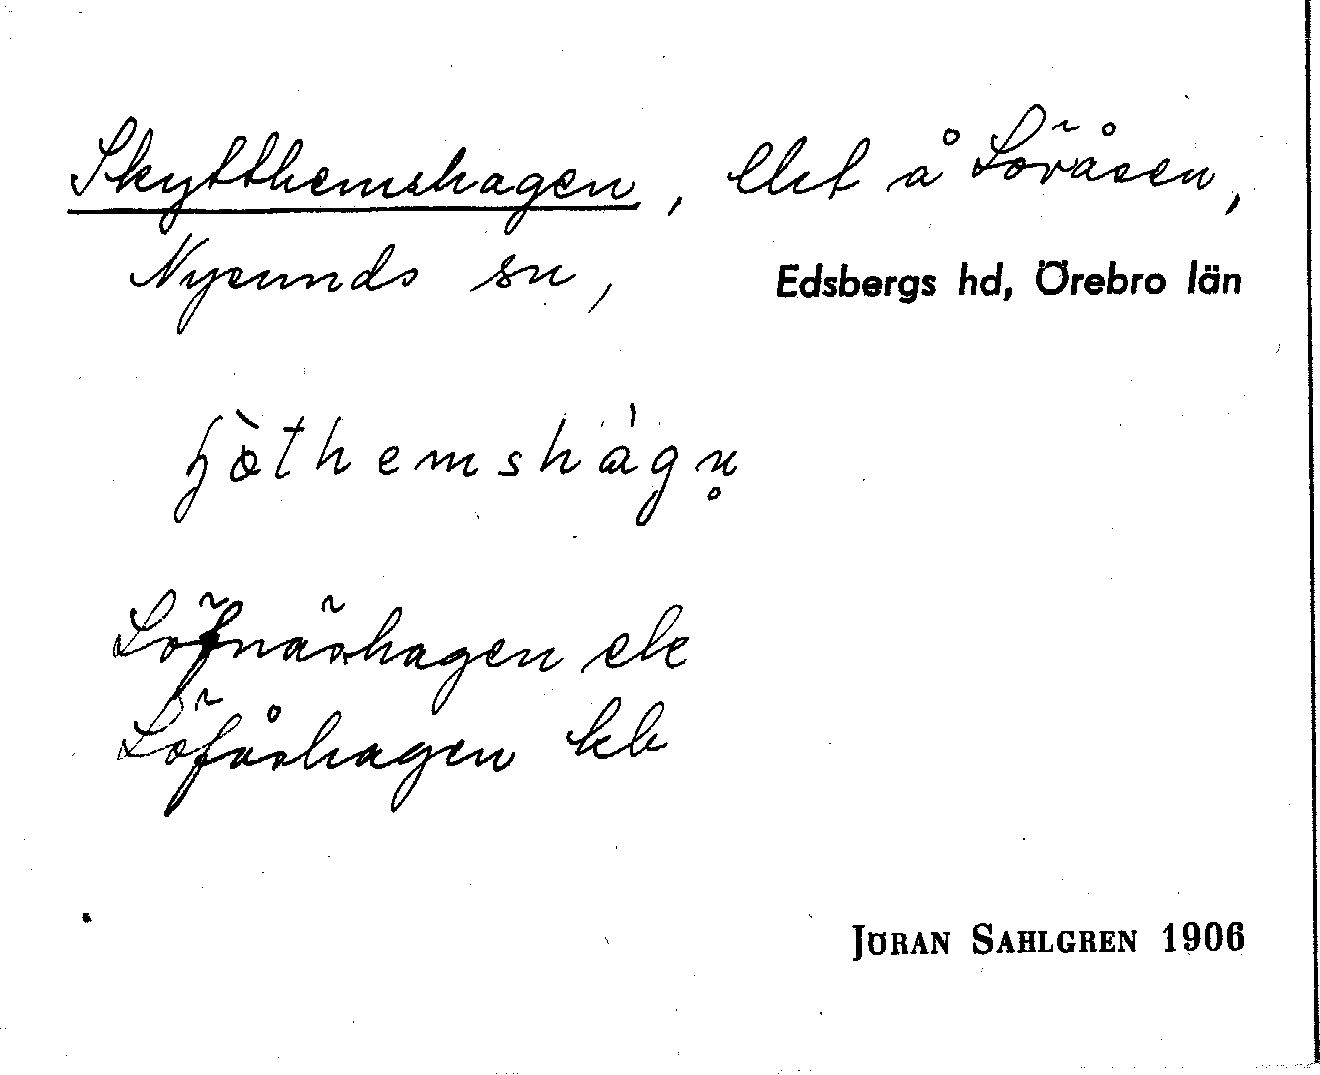 Skytthemshagen, lht å Löråsen,
Nysunds sn, Edsbergs hd, Örebro län
ꜧœ̀themshágn̥
Löfnäshagen ek
Löfåshagen kb
JÖRAN SAHLGREN 1906